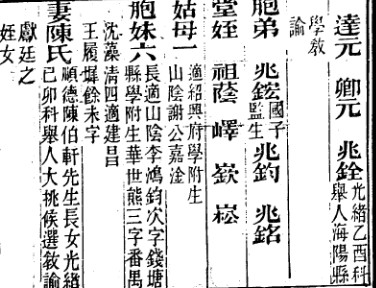 達元 卿元 兆銓 光緒乙酉科
舉人海陽縣
學教
諭
胞弟 兆銨 國子
監生 兆鈞 兆銘
堂姪 祖蔭 嶧 嶽 崧
姑母一 適紹興府學附生
山陰謝公嘉淦
胞妹六 長適山陰李鴻鈞次字錢塘
縣學附生華世熊三字番禺
沈藻清四適建昌
王履墀餘未字
妻陳氏 順德陳伯軒先生長女光緒
己卯科舉人大挑候選教諭
獻廷之
姪女